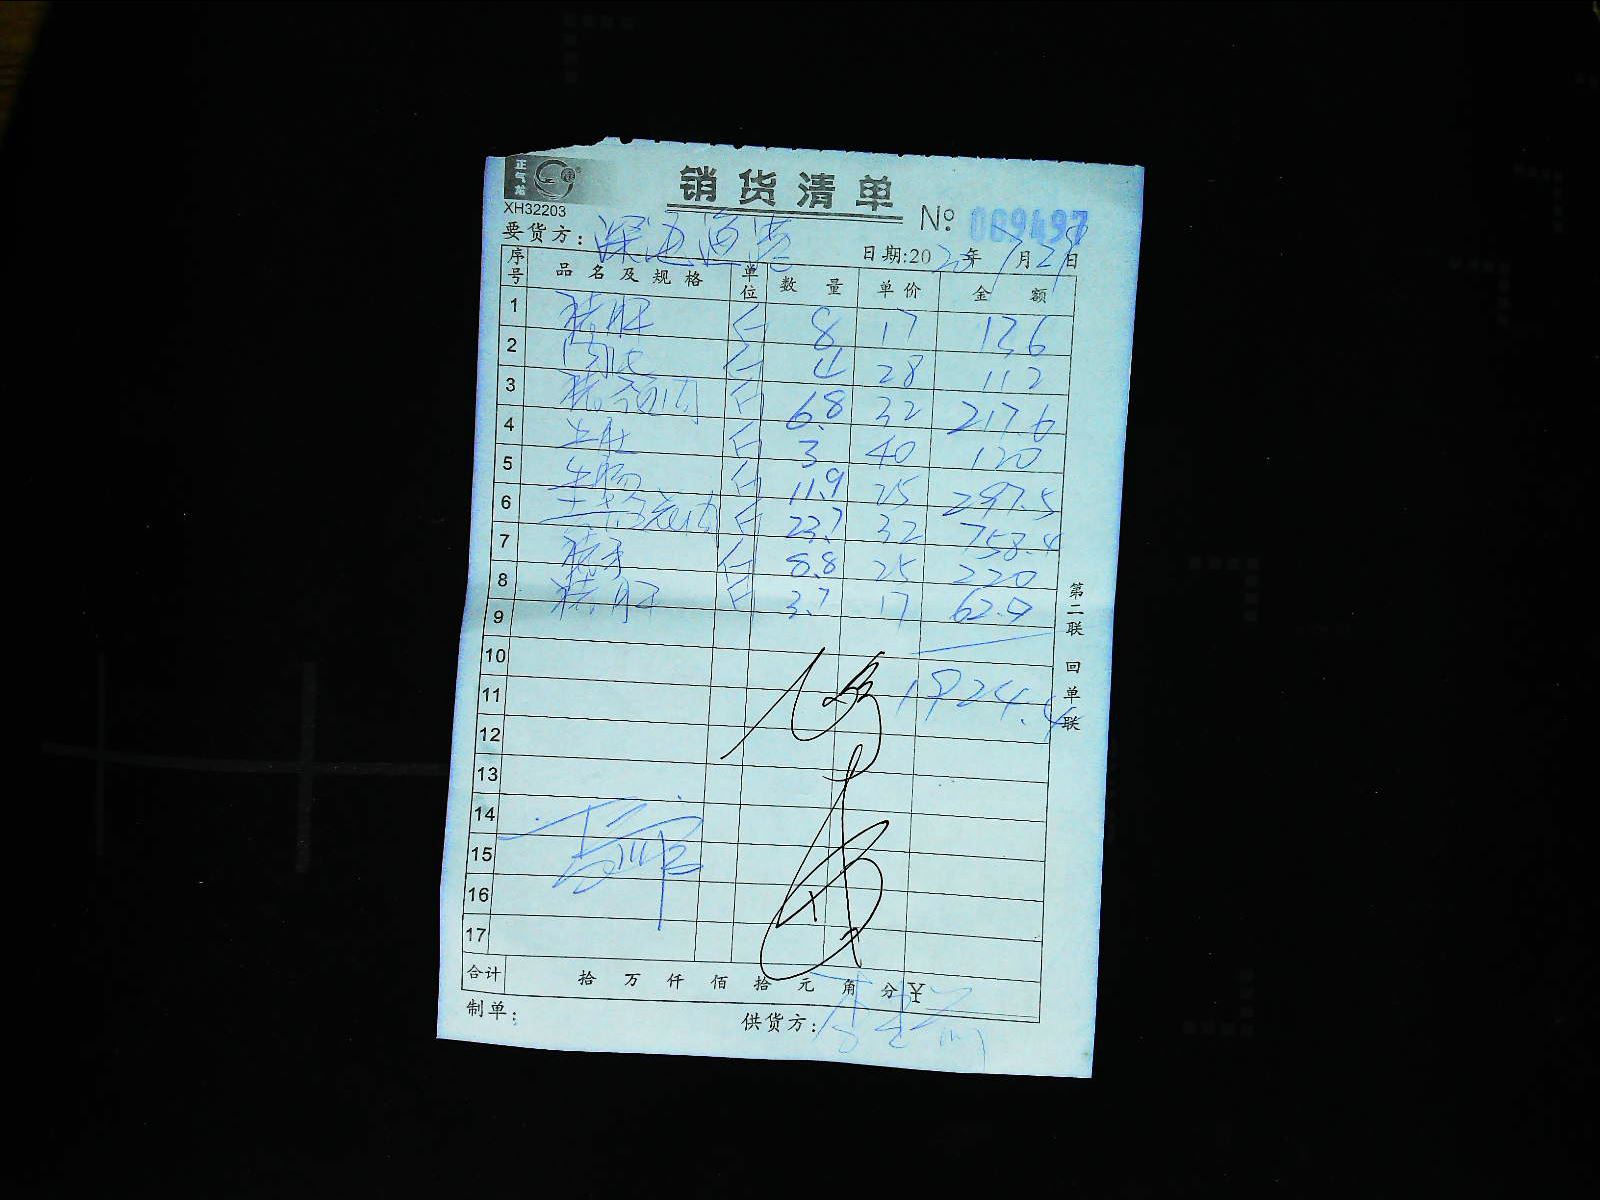 正气龙
销货清单
XH32203
№ 009497
要货方:
日期:20 年7月29日
序号 品名及规格 单位 数量 单价 金额
1 猪肝 8 17 136
2 4 28 112
3 猪颈肉 6.8 32 217.6
4 生肚 3 40 120
5 生肠 11.9 25 297.5
6 23.7 32 758.4
7 猪手 8.8 25 220
8 猪肝 3.7 17 62.9
9
10
11 1924.4
12
13
14
15
16
17
合计 拾 万 仟 佰 拾 元 角 分 ¥
制单:
供货方:
第二联 回单联